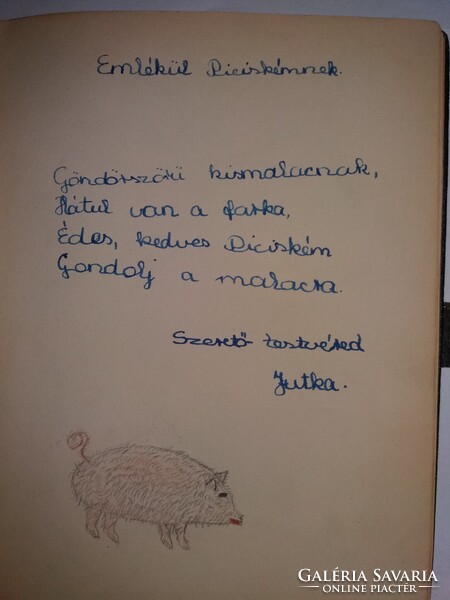 Emlékül Piciskémnek.
Göndörszőrű kismalacnak,
Hátul van a farka,
Édes, kedves Piciském
Gondolj a malacra.
Szerető testvéred
Jutka.
GALÉRIA SAVARIA
ONLINE PIACTÉR